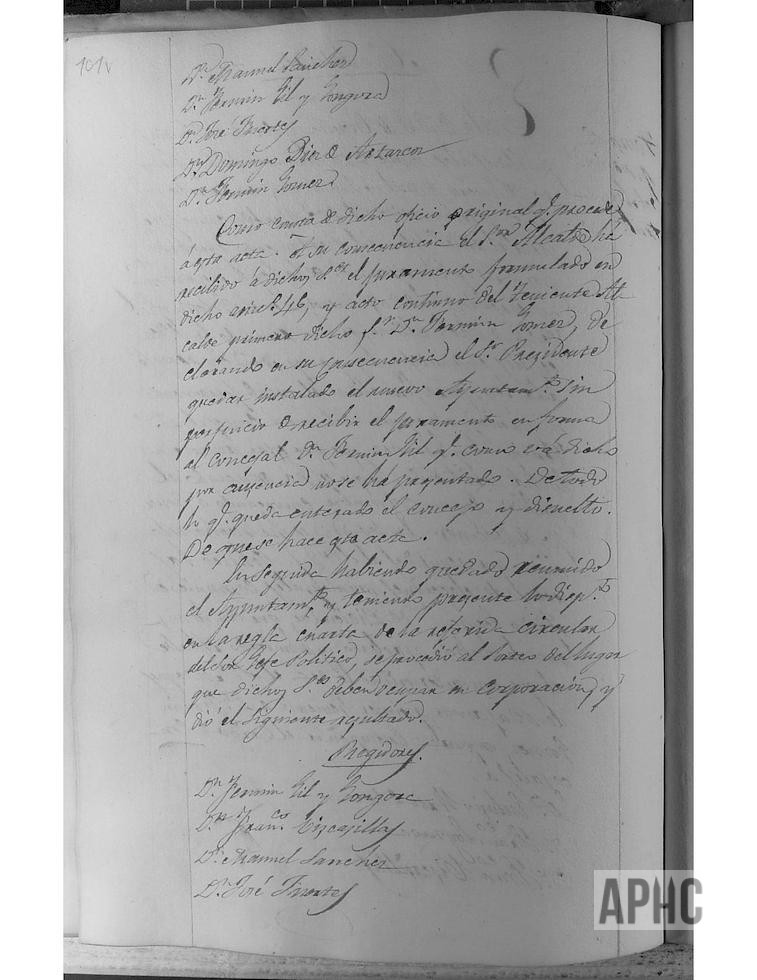 101v
Dn. Manuel Sanchez
Dn. Fermin Gil y Gongora
Dn. José Fuertes
Dn. Domingo Diez de Aztarcon
Dn. Fermin Gomez
Como consta de dicho oficio original q. precede
á esta acta. En su consecuencia el Sor. Alcalde há
recibido á dichos S.res el juramento formulado en
dicho artic.º 46, y acto continuo del Teniente Al
calde primero dicho Sr. Dn. Fermin Gomez, de
clarando en su consecuencia el Sr. Presidente
quedar instalado el nuevo Ayuntam.to sin
perjuicio de recibir el juramento en forma
al Concejal Dn. Fermin Gil q. como vá dicho
por ausencia no se há presentado. De todo
lo q. queda enterado el concejo y disuelto.
De que se hace esta acta.
En seguida habiendo quedado reunido
el Ayuntam.to y teniendo presente lo disp.to
en la regla cuarta de la referida circular
del Sor. Gefe Politico, se procedió al sorteo del lugar
que dichos S.res deben ocupar en corporacion, y
dió el siguiente resultado.
Regidores.
Dn. Fermin Gil y Gongora
Dn. Fran.co Vizcasillas
Dn. Manuel Sanchez
Dn. José Fuertes
APHC